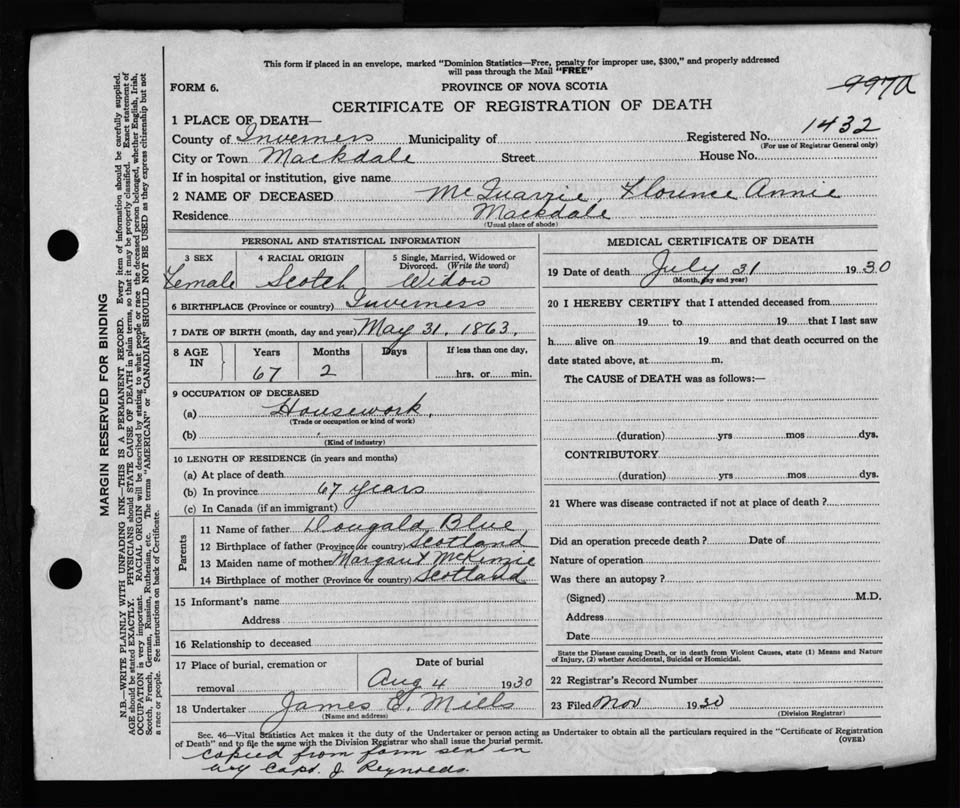 This form if placed in an envelope, marked "Dominion Statistics—Free, penalty for improper use, $300," and properly addressed
will pass through the Mail "FREE"
997a
FORM 6.
PROVINCE OF NOVA SCOTIA
CERTIFICATE OF REGISTRATION OF DEATH
1 PLACE OF DEATH—
County of Inverness Municipality of Registered No. 1432
(For use of Registrar General only)
City or Town Mackdale Street House No.
If in hospital or institution, give name
2 NAME OF DECEASED McQuarrie, Florence Annie
Residence Mackdale
(Usual place of abode)
PERSONAL AND STATISTICAL INFORMATION
3 SEX 4 RACIAL ORIGIN 5 Single, Married, Widowed or
Divorced. (Write the word)
Female Scotch Widow
6 BIRTHPLACE (Province or country) Inverness
7 DATE OF BIRTH (month, day and year) May 31, 1863,
8 AGE IN Years Months Days If less than one day,
67 2 hrs. or min.
9 OCCUPATION OF DECEASED
(a) Housework,
(Trade or occupation or kind of work)
(b)
(Kind of industry)
10 LENGTH OF RESIDENCE (in years and months)
(a) At place of death
(b) In province 67 years
(c) In Canada (if an immigrant)
Parents
11 Name of father Dougald Blue
12 Birthplace of father (Province or country) Scotland
13 Maiden name of mother Margaret McKinzie
14 Birthplace of mother (Province or country) Scotland
15 Informant's name
Address
16 Relationship to deceased
17 Place of burial, cremation or Date of burial
removal Aug 4 1930
18 Undertaker James E. Mills
(Name and address)
MEDICAL CERTIFICATE OF DEATH
19 Date of death July 31 1930
(Month, day and year)
20 I HEREBY CERTIFY that I attended deceased from
19 to 19 that I last saw
h alive on 19 and that death occurred on the
date stated above, at m.
The CAUSE of DEATH was as follows:—
(duration) yrs mos dys.
CONTRIBUTORY
(duration) yrs mos dys.
21 Where was disease contracted if not at place of death?
Did an operation precede death? Date of
Nature of operation
Was there an autopsy?
(Signed) M.D.
Address
Date
State the Disease causing Death, or in death from Violent Causes, state (1) Means and Nature
of Injury, (2) whether Accidental, Suicidal or Homicidal.
22 Registrar's Record Number
23 Filed Nov 1930
(Division Registrar)
Sec. 46—Vital Statistics Act makes it the duty of the Undertaker or person acting as Undertaker to obtain all the particulars required in the "Certificate of Registration
of Death" and to file the same with the Division Registrar who shall issue the burial permit. (OVER)
Copied from form sent in
by Capt. J. Reynolds.
MARGIN RESERVED FOR BINDING
N.B.—WRITE PLAINLY WITH UNFADING INK—THIS IS A PERMANENT RECORD. Every item of information should be carefully supplied.
AGE should be stated EXACTLY. PHYSICIANS should STATE CAUSE OF DEATH in plain terms, so that it may be properly classified. Exact statement of
OCCUPATION is very important. RACIAL ORIGIN will be described by stating to what people or race the deceased person belonged, whether English, Irish,
Scotch, French, German, Russian, Ruthenian, etc. The terms "AMERICAN" or "CANADIAN" SHOULD NOT BE USED as they express citizenship but not
a race or people. See instructions on back of Certificate.